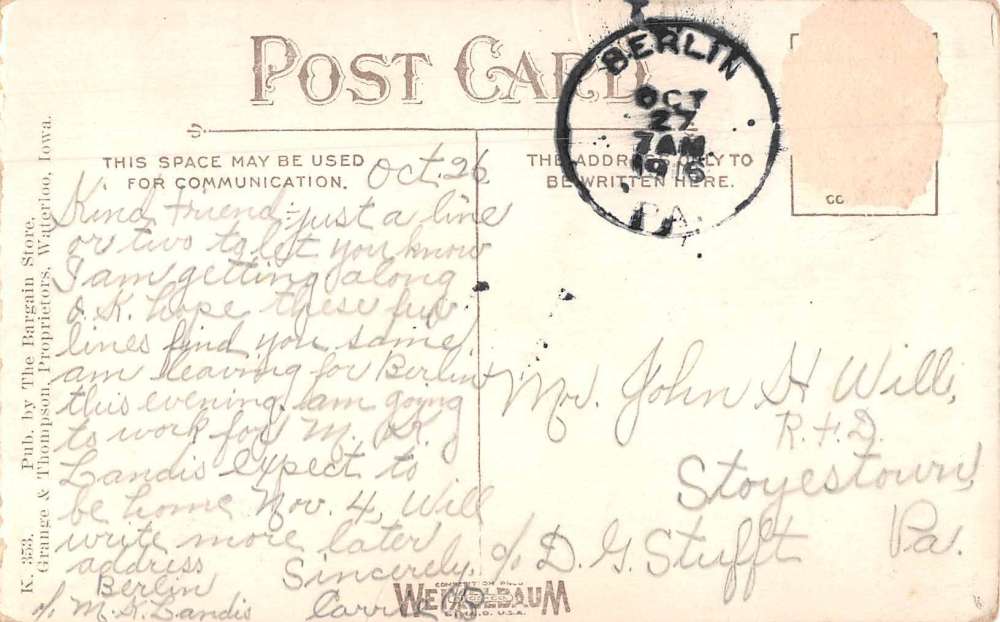 POST CARD
BERLIN
OCT
27
7 AM
1916
PA.
THIS SPACE MAY BE USED
FOR COMMUNICATION.
THE ADDRESS ONLY TO
BE WRITTEN HERE.
Oct 26
Kind Friend:- just a line
or two to let you know
I am getting along
O.K. hope these few
lines find you same,
am leaving for Berlin
this evening, am going
to work for M. K.
Landis expect to
be home Nov. 4, Will
write more later
address Sincerely,
Berlin
c/o M.K. Landis Carrie B
Mr. John H Will,
R.F.D.
Stoyestown,
Pa.
c/o D. G. Stufft
K. 353. Pub. by The Bargain Store,
Grange & Thompson, Proprietors, Waterloo, Iowa.
CHICAGO, U.S.A.